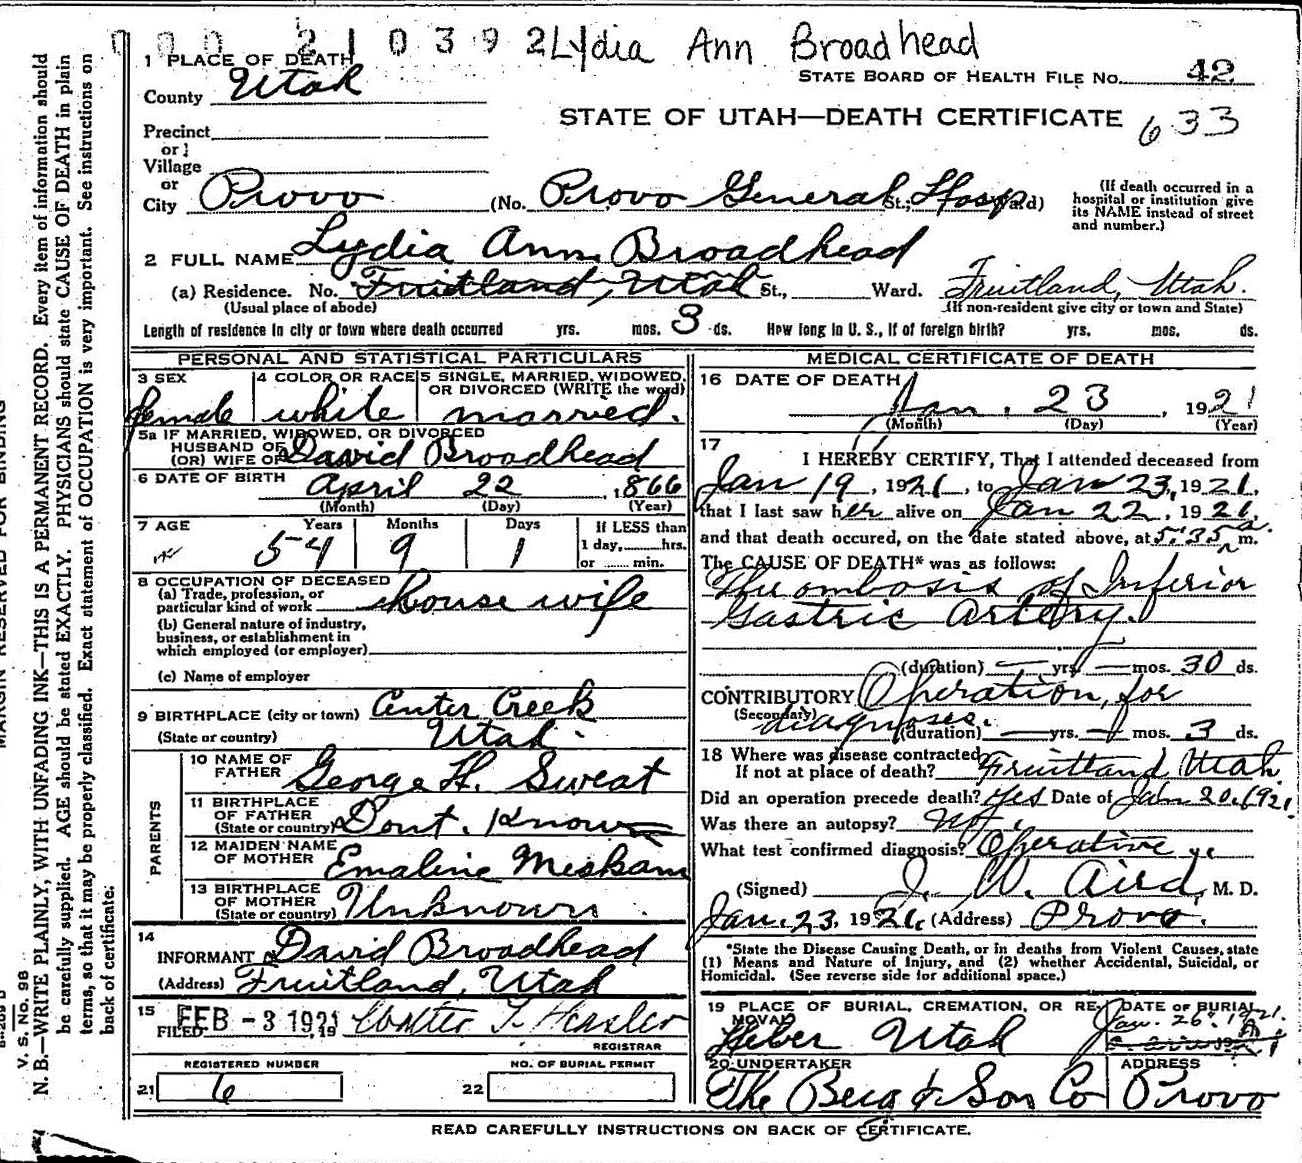 000 210392 Lydia Ann Broadhead
1 PLACE OF DEATH
STATE BOARD OF HEALTH FILE NO. 42
County Utah
STATE OF UTAH—DEATH CERTIFICATE 633
Precinct
or
Village
or
City Provo (No. Provo General Hosp St.; Ward)
(If death occurred in a hospital or institution give its NAME instead of street and number.)
2 FULL NAME Lydia Ann Broadhead
(a) Residence. No. Fruitland, Utah St., Ward. Fruitland, Utah.
(Usual place of abode) (If non-resident give city or town and State)
Length of residence in city or town where death occurred yrs. mos. 3 ds. How long in U. S., if of foreign birth? yrs. mos. ds.
PERSONAL AND STATISTICAL PARTICULARS
3 SEX 4 COLOR OR RACE 5 SINGLE, MARRIED, WIDOWED,
OR DIVORCED (WRITE the word)
female white married.
5a IF MARRIED, WIDOWED, OR DIVORCED
HUSBAND OF
(OR) WIFE OF David Broadhead
6 DATE OF BIRTH April 22, 1866
(Month) (Day) (Year)
7 AGE Years Months Days If LESS than
54 9 1 1 day, hrs.
or min.
8 OCCUPATION OF DECEASED
(a) Trade, profession, or
particular kind of work house wife
(b) General nature of industry,
business, or establishment in
which employed (or employer)
(c) Name of employer
9 BIRTHPLACE (city or town) Center Creek
(State or country) Utah.
PARENTS
10 NAME OF
FATHER George H. Sweat
11 BIRTHPLACE
OF FATHER
(State or country) Dont. Know
12 MAIDEN NAME
OF MOTHER Emaline Meskam
13 BIRTHPLACE
OF MOTHER
(State or country) Unknown.
14
INFORMANT David Broadhead
(Address) Fruitland, Utah
15
FILED FEB -3 1921, 19 Walter T. Hasler
REGISTRAR
REGISTERED NUMBER NO. OF BURIAL PERMIT
21 6 22
MEDICAL CERTIFICATE OF DEATH
16 DATE OF DEATH
Jan. 23, 1921
(Month) (Day) (Year)
17
I HEREBY CERTIFY, That I attended deceased from
Jan 19, 1921, to Jan 23, 1921,
that I last saw her alive on Jan 22, 1921,
and that death occured, on the date stated above, at 5:35 a m.
The CAUSE OF DEATH* was as follows:
Thrombosis of Inferior
Gastric Artery.
(duration) — yrs. — mos. 30 ds.
CONTRIBUTORY Operation, for
(Secondary) diagnoses.
(duration) — yrs. — mos. 3 ds.
18 Where was disease contracted
If not at place of death? Fruitland Utah.
Did an operation precede death? Yes Date of Jan 20, 1921.
Was there an autopsy? No.
What test confirmed diagnosis? Operative
(Signed) J. W. Aird, M. D.
Jan. 23, 1921. (Address) Provo.
*State the Disease Causing Death, or in deaths from Violent Causes, state
(1) Means and Nature of Injury, and (2) whether Accidental, Suicidal, or
Homicidal. (See reverse side for additional space.)
19 PLACE OF BURIAL, CREMATION, OR RE- DATE OF BURIAL
MOVAL Jan. 26, 1921.
Heber Utah
20 UNDERTAKER ADDRESS
The Berg & Son Co Provo
READ CAREFULLY INSTRUCTIONS ON BACK OF CERTIFICATE.
MARGIN RESERVED FOR BINDING
V. S. No. 98
N. B.—WRITE PLAINLY, WITH UNFADING INK—THIS IS A PERMANENT RECORD. Every item of information should
be carefully supplied. AGE should be stated EXACTLY. PHYSICIANS should state CAUSE OF DEATH in plain
terms, so that it may be properly classified. Exact statement of OCCUPATION is very important. See instructions on
back of certificate.